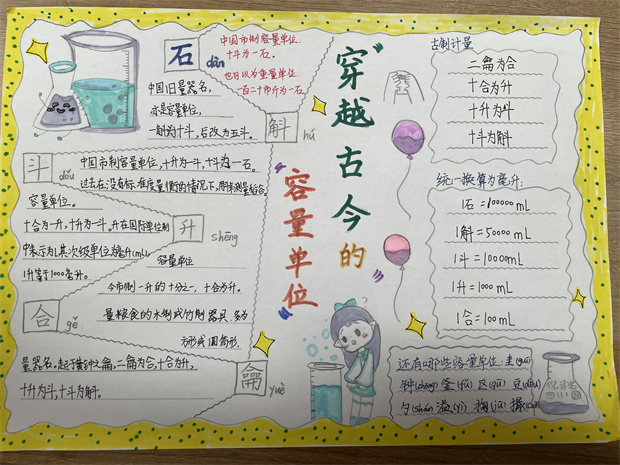 石 dàn
中国市制容量单位
十斗为一石。
也可以为重量单位
一百二十市斤为一石。
中国旧量器名,
亦是容量单位,
一斛为十斗,后改为五斗。
斛 hú
斗 dǒu
中国市制容量单位,十升为一斗,十斗为一石。
过去在没有标准度量衡的情况下,用来测量
容量单位。
升 shēng
十合为一升,十升为一斗。升在国际单位制
中表示为L其次级单位为毫升(mL),
1升等于1000毫升。
合 gě
容量单位
今市制一升的十分之一,十合为升。
量粮食的木制或竹制器具 多为
方形或圆筒形.
龠 yuè
量器名,起于黄钟之龠,二龠为合,十合为升,
十升为斗,十斗为斛。
“穿越古今的”
“容量单位”
古制计量
二龠为合
十合为升
十升为斗
十斗为斛
统一换算为毫升:
1石=100000mL
1斛=50000mL
1斗=10000mL
1升=1000mL
1合=100mL
还有哪些容量单位:圭(guī)
钟(zhōng) 釜(fǔ) 区(qū) 豆(dòu)
勺(sháo) 溢(yì) 掬(jū) 撮